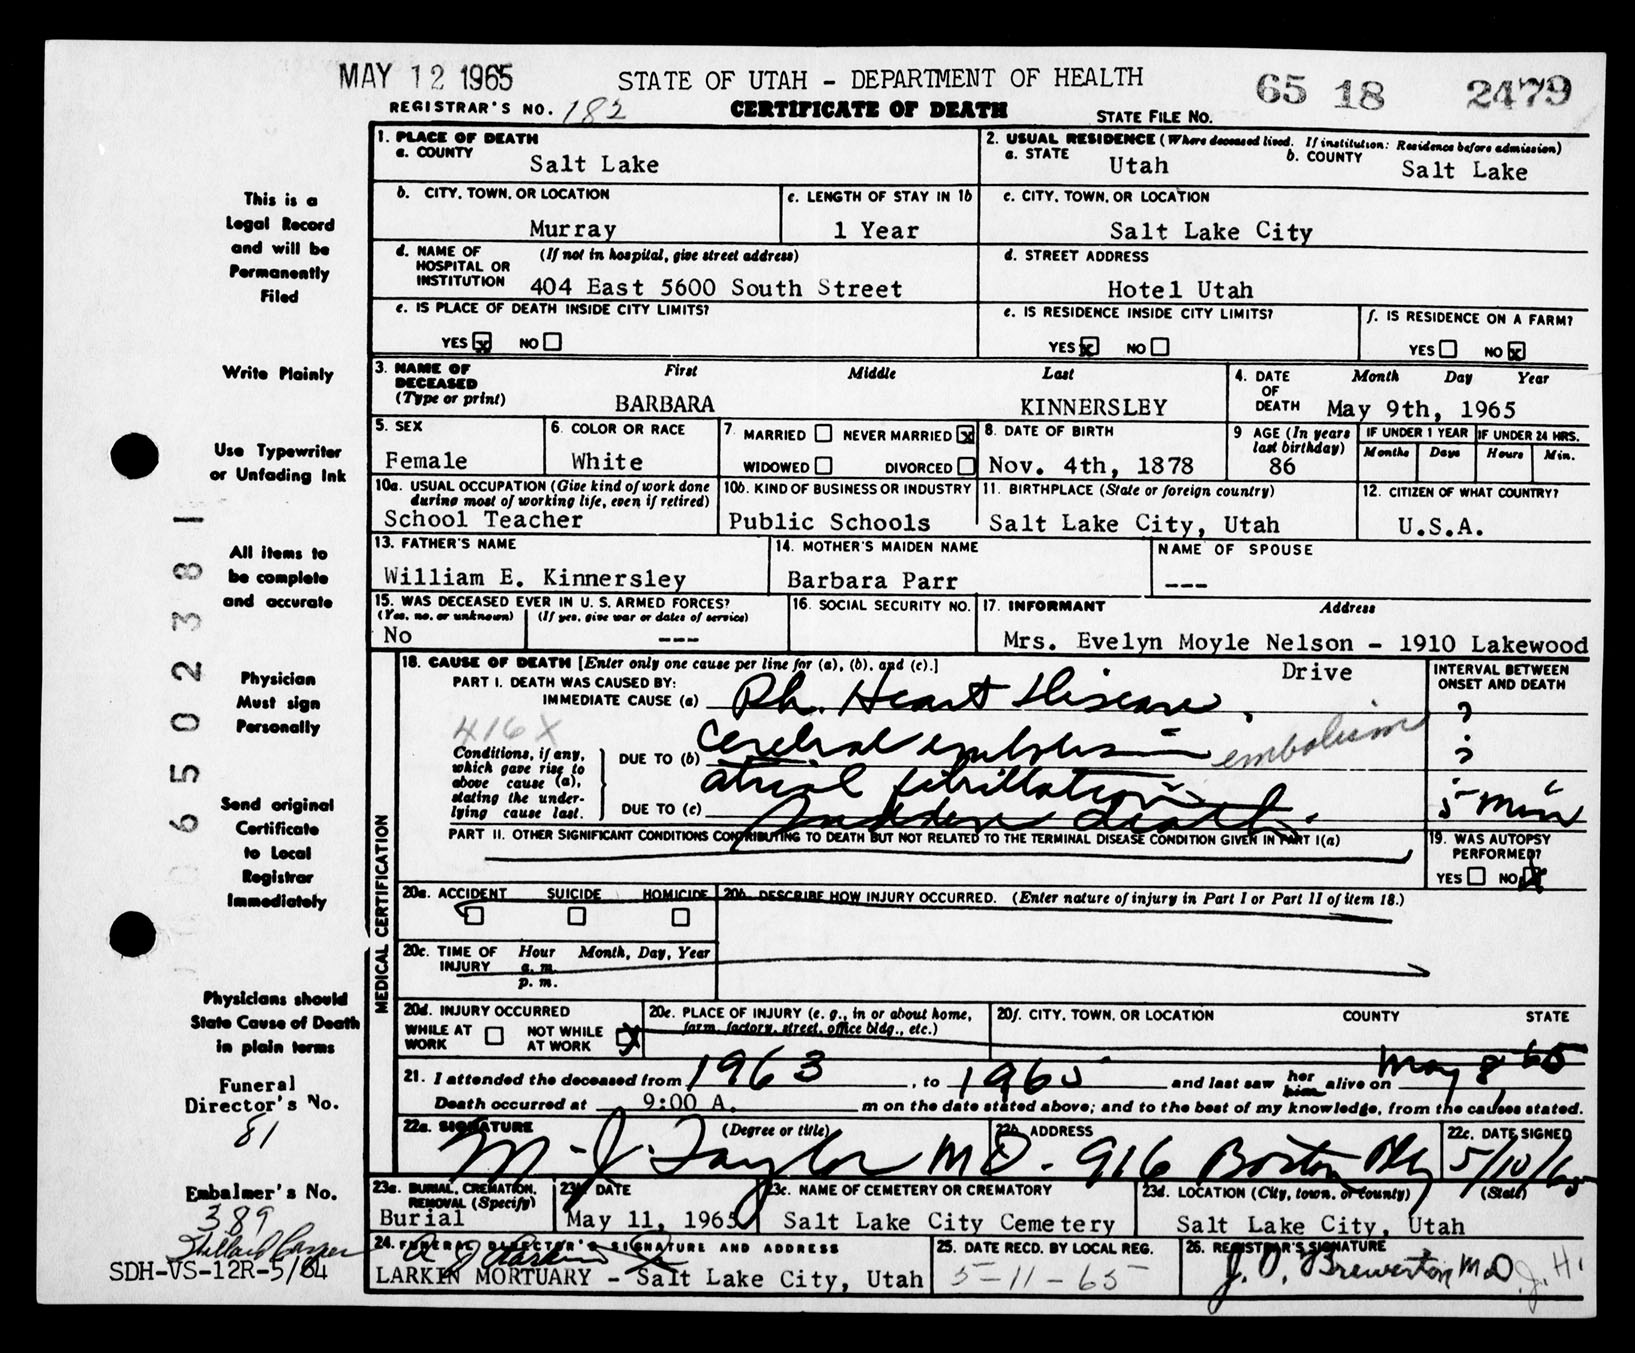 MAY 12 1965
STATE OF UTAH - DEPARTMENT OF HEALTH
65 18 2479
REGISTRAR'S NO. 182
CERTIFICATE OF DEATH
STATE FILE NO.
1. PLACE OF DEATH
a. COUNTY
Salt Lake
2. USUAL RESIDENCE (Where deceased lived. If institution: Residence before admission)
a. STATE Utah b. COUNTY Salt Lake
b. CITY, TOWN, OR LOCATION
Murray
c. LENGTH OF STAY IN 1b
1 Year
c. CITY, TOWN, OR LOCATION
Salt Lake City
d. NAME OF HOSPITAL OR INSTITUTION (If not in hospital, give street address)
404 East 5600 South Street
d. STREET ADDRESS
Hotel Utah
e. IS PLACE OF DEATH INSIDE CITY LIMITS?
YES x NO
e. IS RESIDENCE INSIDE CITY LIMITS?
YES x NO
f. IS RESIDENCE ON A FARM?
YES NO x
3. NAME OF DECEASED (Type or print) First Middle Last
BARBARA KINNERSLEY
4. DATE OF DEATH Month Day Year
May 9th, 1965
5. SEX
Female
6. COLOR OR RACE
White
7. MARRIED NEVER MARRIED x
WIDOWED DIVORCED
8. DATE OF BIRTH
Nov. 4th, 1878
9 AGE (In years last birthday)
86
IF UNDER 1 YEAR Months Days
IF UNDER 24 HRS. Hours Min.
10a. USUAL OCCUPATION (Give kind of work done during most of working life, even if retired)
School Teacher
10b. KIND OF BUSINESS OR INDUSTRY
Public Schools
11. BIRTHPLACE (State or foreign country)
Salt Lake City, Utah
12. CITIZEN OF WHAT COUNTRY?
U.S.A.
13. FATHER'S NAME
William E. Kinnersley
14. MOTHER'S MAIDEN NAME
Barbara Parr
NAME OF SPOUSE
---
15. WAS DECEASED EVER IN U. S. ARMED FORCES?
(Yes, no, or unknown) (If yes, give war or dates of service)
No ---
16. SOCIAL SECURITY NO.
17. INFORMANT Address
Mrs. Evelyn Moyle Nelson - 1910 Lakewood
Drive
MEDICAL CERTIFICATION
18. CAUSE OF DEATH [Enter only one cause per line for (a), (b), and (c).]
INTERVAL BETWEEN ONSET AND DEATH
PART I. DEATH WAS CAUSED BY:
IMMEDIATE CAUSE (a) Rh. Heart Disease, ?
416X
Conditions, if any, which gave rise to above cause (a), stating the underlying cause last.
DUE TO (b) Cerebral embolism embolism ?
atrial fibrillation
DUE TO (c) Sudden death. 5 min
PART II. OTHER SIGNIFICANT CONDITIONS CONTRIBUTING TO DEATH BUT NOT RELATED TO THE TERMINAL DISEASE CONDITION GIVEN IN PART I(a)
19. WAS AUTOPSY PERFORMED?
YES NO x
20a. ACCIDENT SUICIDE HOMICIDE
20b. DESCRIBE HOW INJURY OCCURRED. (Enter nature of injury in Part I or Part II of item 18.)
20c. TIME OF INJURY Hour Month, Day, Year
a. m.
p. m.
20d. INJURY OCCURRED
WHILE AT WORK NOT WHILE AT WORK x
20e. PLACE OF INJURY (e. g., in or about home, farm, factory, street, office bldg., etc.)
20f. CITY, TOWN, OR LOCATION COUNTY STATE
21. I attended the deceased from 1963, to 1965 and last saw her him alive on May 8 65
Death occurred at 9:00 A. m on the date stated above; and to the best of my knowledge, from the causes stated.
22a. SIGNATURE (Degree or title)
M. J. Taylor MD.
22b. ADDRESS
916 Boston Bldg
22c. DATE SIGNED
5/10/65
23a. BURIAL, CREMATION, REMOVAL (Specify)
Burial
23b. DATE
May 11, 1965
23c. NAME OF CEMETERY OR CREMATORY
Salt Lake City Cemetery
23d. LOCATION (City, town, or county) (State)
Salt Lake City, Utah
24. FUNERAL DIRECTOR'S SIGNATURE AND ADDRESS
LARKIN MORTUARY - Salt Lake City, Utah
25. DATE RECD. BY LOCAL REG.
5-11-65
26. REGISTRAR'S SIGNATURE
J. D. Brewerton MD J.H.
This is a
Legal Record
and will be
Permanently
Filed
Write Plainly
Use Typewriter
or Unfading Ink
All items to
be complete
and accurate
Physician
Must sign
Personally
Send original
Certificate
to Local
Registrar
Immediately
Physicians should
State Cause of Death
in plain terms
Funeral
Director's No.
81
Embalmer's No.
389
SDH-VS-12R-5/64
6502381